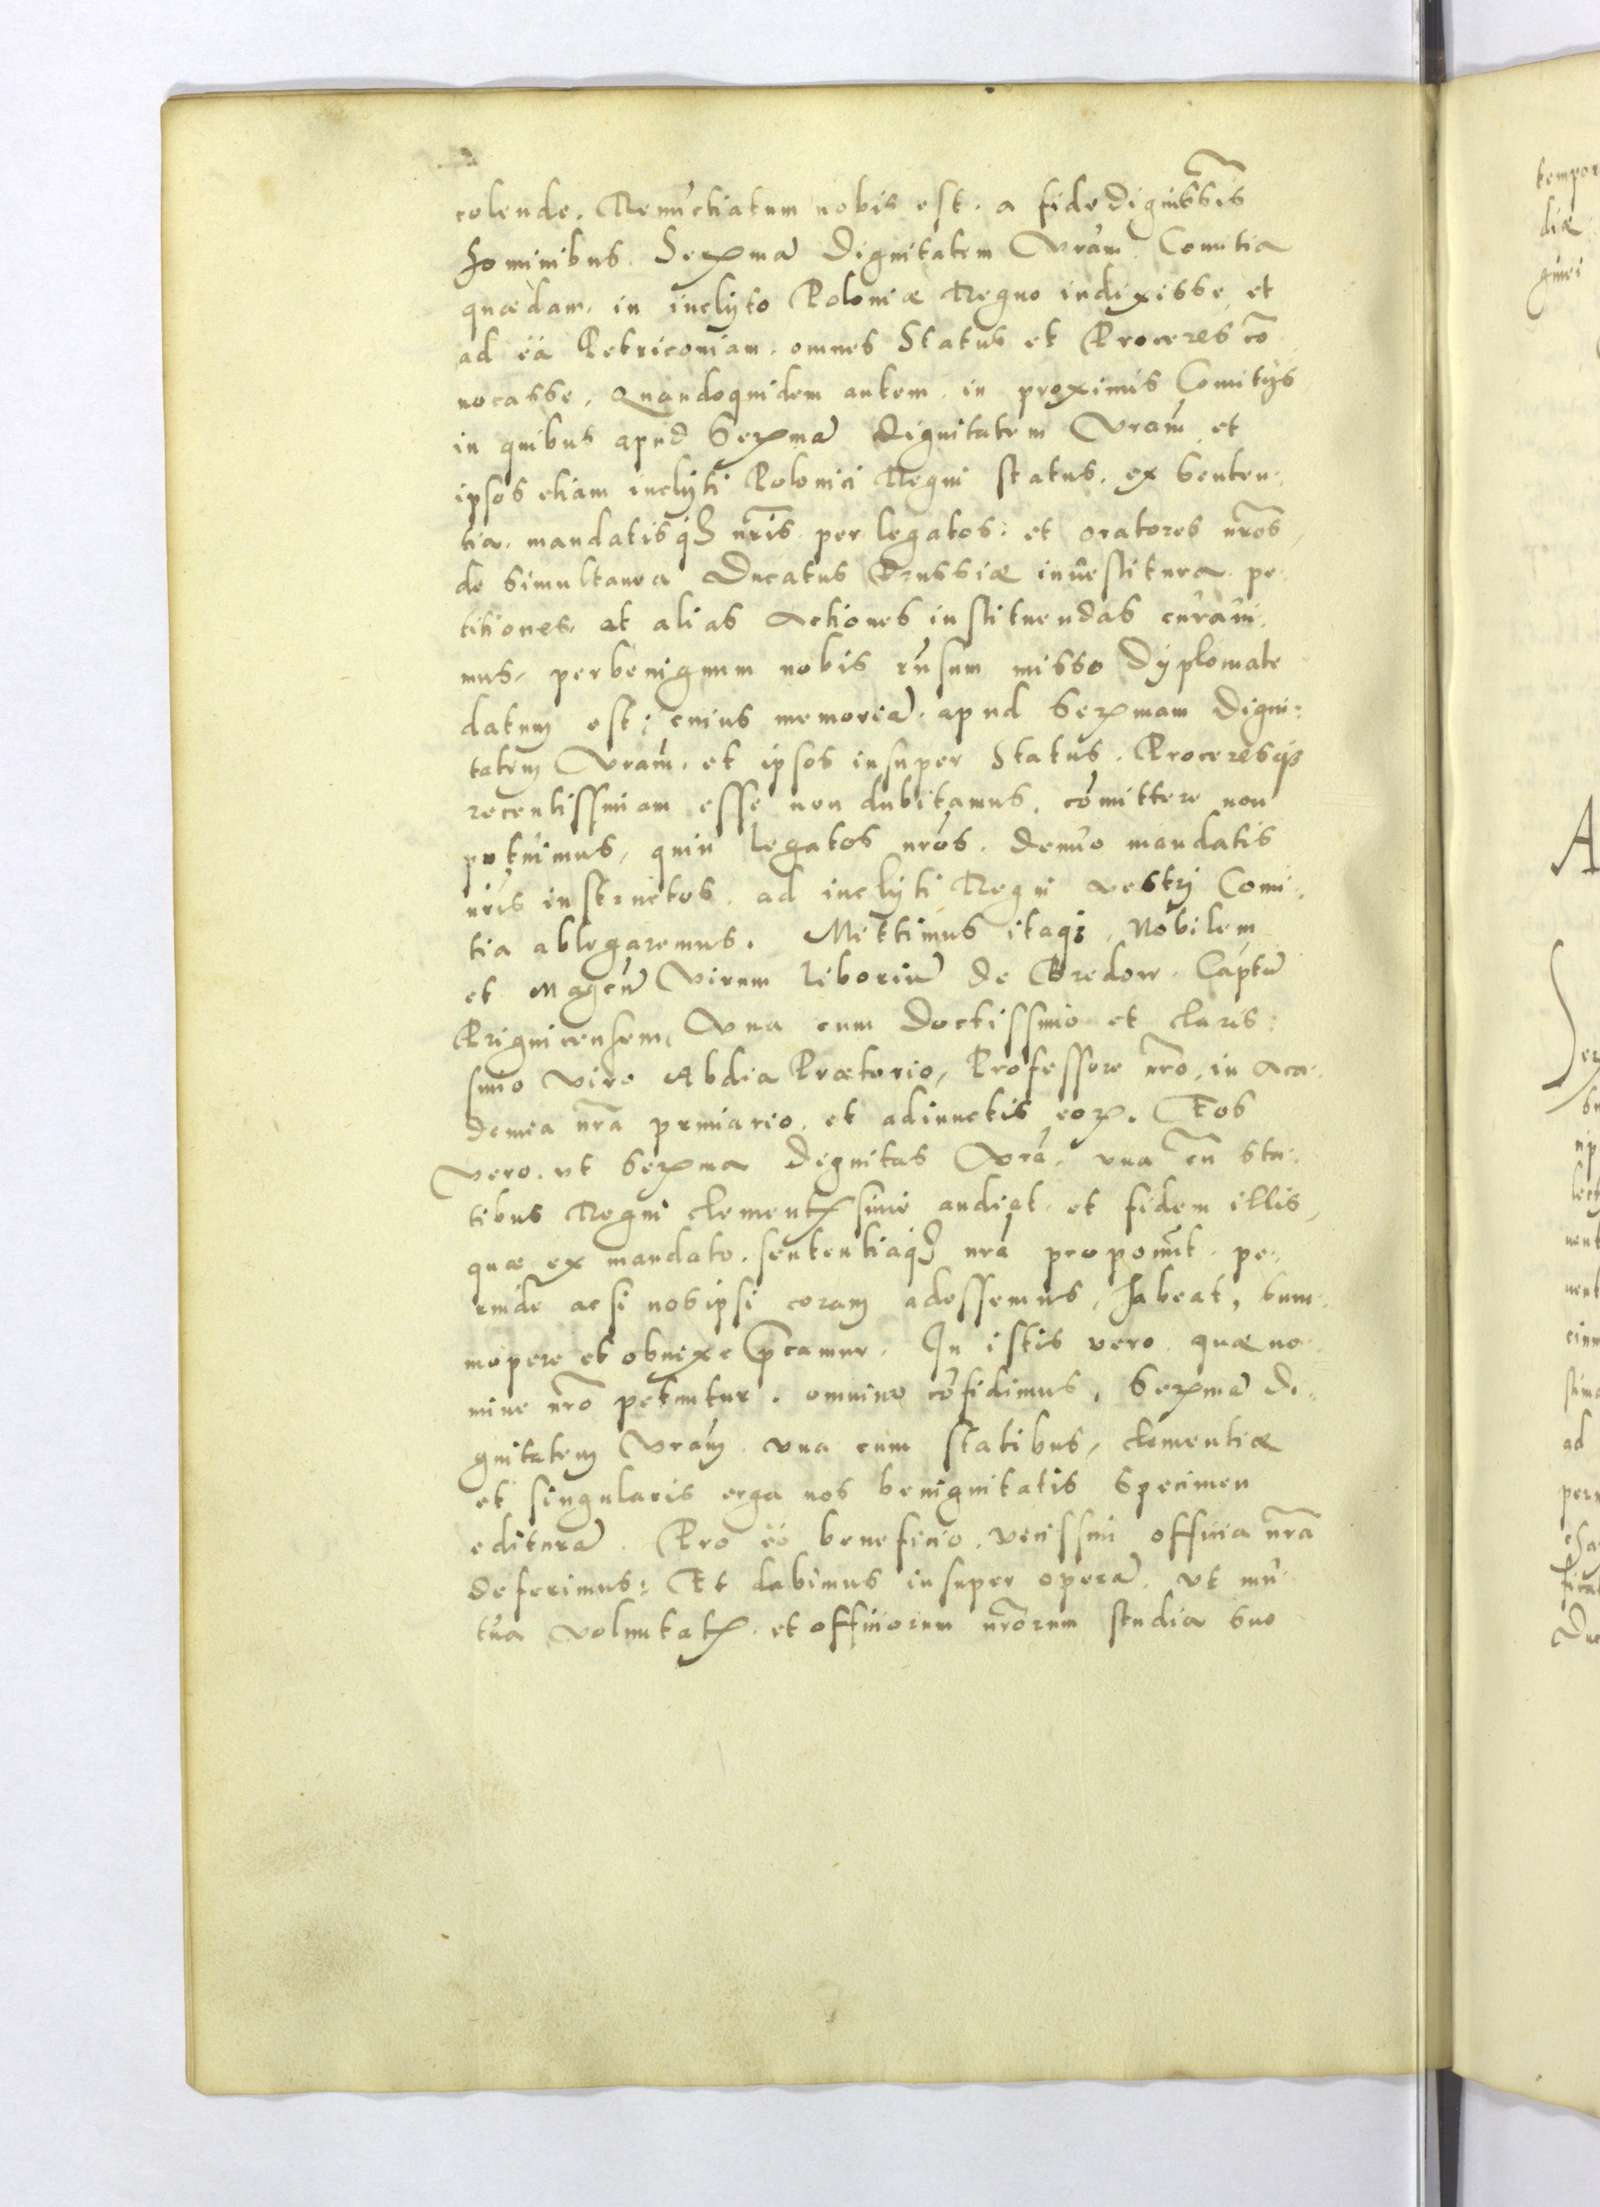 colende. Renunctiatum nobis est. a fidedignissis
hominibus. Serma dignitatem Vram Comitia
quædam. in inclyto Poloniæ Regno indixisse, et
ad ea Petriconiam. omnes Status et Proceres co
uocasse, Quandoquidem autem. in proximis Comitijs
in quibus apud Serma dignitatem Vram et
ipsos etiam inclyti Polonici Regni status. ex senten:
tia. mandatisq nris per legatos. et oratores nros,
de simultanea Ducatus Prussiæ inuestitura. pe:
titiones, et alias actiones instituendas curaui:
mus, perbenignum nobis rursum misso dyplomate
datum est, cuius memoria apud Sermam digni:
tatem Vram. et ipsos insuper Status. Proceresq
recentissimam esse non dubitamus, comittere non
potuimus, quin legatos nros. denuo mandatis
nris instructos. ad inclyti Regni vestri Comi:
tia ablegaremus. Mittimus itaq, Nobilem
et Magcu Virum Liboriu de Bredow. Captu
Prignicensem, Vna cum doctissimo et claris:
simo viro Abdia Prætorio, Professore nro, in Aca:
demia nra primario. et adiunctis eor. Eos
vero. vt Serma dignitas Vra. vna cu sta:
tibus Regni clementissime audiat. et fidem illis,
quæ ex mandato. sententiaq nra proponut. pe:
rinde acsi nosipsi coram adessemus, habeat, sum:
mopere et obnixe pcamur. In istis vero. quæ no:
mine nro petuntur. omnino cofidimus, Serma di:
gnitatem Vram. vna cum statibus, clementiæ
et singularis erga nos benignitatis specimen
editura. Pro eo beneficio. vicissim officia nra
deferimus: Et dabimus insuper opera. vt mu:
tua voluntatis. et officiorum nrorum studia suo
tempor
diæ
A
ad